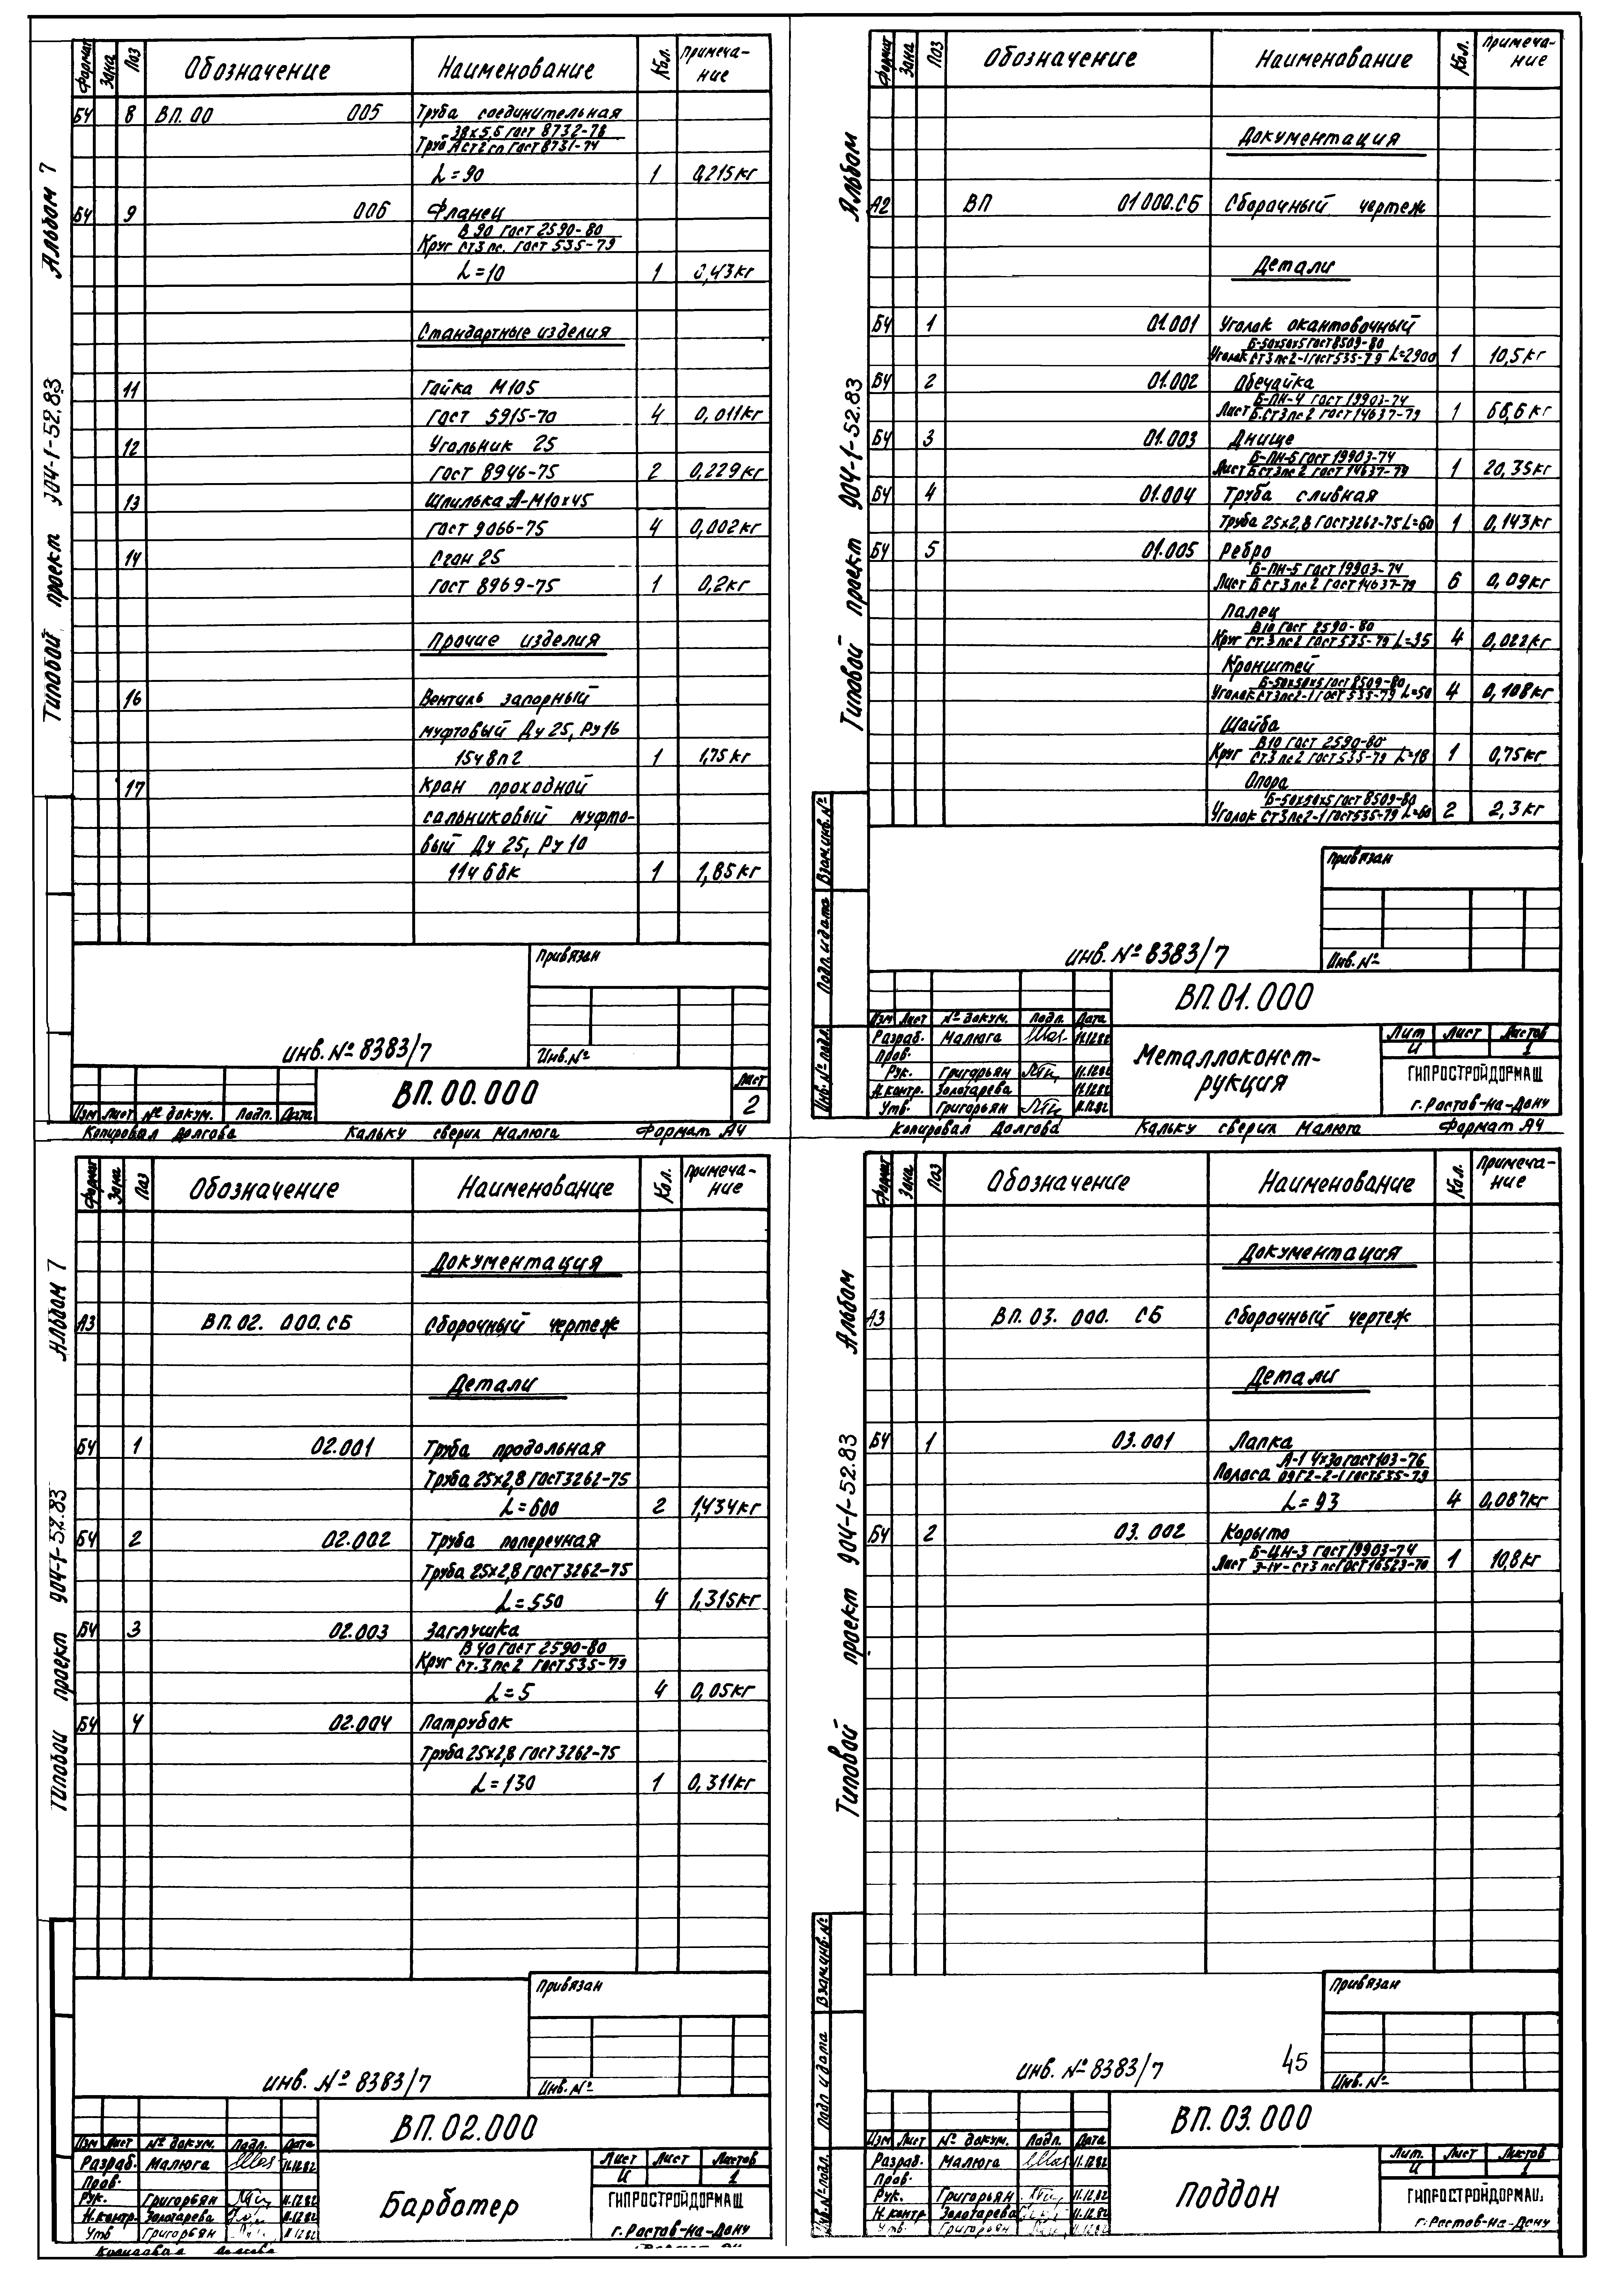 Альбом 7
Типовой проект 904-1-52.83
Формат Зона Поз Обозначение Наименование Кол. Примеча-
ние
БЧ 8 ВП.00 005 Труба соединительная
38х5,6 Гост 8732-78
Труба Аст2сп Гост 8731-74
L=90 1 0,215кг
БЧ 9 006 Фланец
В 90 Гост 2590-80
Круг Ст3пс. Гост 535-79
L=10 1 0,43кг
Стандартные изделия
11 Гайка М105
Гост 5915-70 4 0,011кг
12 Угольник 25
Гост 8946-75 2 0,229кг
13 Шпилька А-М10х45
Гост 9066-75 4 0,002кг
14 Сгон 25
Гост 8969-75 1 0,2кг
Прочие изделия
16 Вентиль запорный
муфтовый Ду 25, Ру16
15ч8п2 1 1,75кг
17 Кран проходной
сальниковый муфто-
вый Ду 25, Ру 10
11ч6бк 1 1,85кг
Привязан
инв. № 8383/7
Инв.№
ВП.00.000
Лист
2
Изм Лист № докум. Подп. Дата
Копировал Долгова Кальку сверил Малюга Формат А4
Альбом
Типовой проект 904-1-52.83
Формат Зона Поз Обозначение Наименование Кол. Примеча-
ние
Документация
А2 ВП 01000.СБ Сборочный чертеж
Детали
БЧ 1 01.001 Уголок окантовочный
Б-50х50х5 Гост 8509-80
Уголок Ст3пс2-1 Гост 535-79 L=2900 1 10,5кг
БЧ 2 01.002 Обечайка
Б-ПН-4 Гост 19903-74
Лист Б.Ст3пс2 Гост 14637-79 1 68,6кг
БЧ 3 01.003 Днище
Б-ПН-5 Гост 19903-74
Лист Б Ст3пс2 Гост 14637-79 1 20,35кг
БЧ 4 01.004 Труба сливная
Труба 25х2,8 Гост 3262-75 L=60 1 0,143кг
БЧ 5 01.005 Ребро
Б-ПН-5 Гост 19903-74
Лист Б Ст3пс2 Гост 14637-79 6 0,09кг
Палец
В10 Гост 2590-80
Круг Ст.3пс2 Гост 535-79 L=35 4 0,022кг
Кронштей
Б-50х50х5 Гост 8509-80
Уголок Ст3пс2-1 Гост 535-79 L=50 4 0,108кг
Шайба
В10 Гост 2590-80
Круг Ст.3пс2 Гост 535-79 L=18 1 0,75кг
Опора
Б-50х50х5 Гост 8509-80
Уголок Ст3пс2-1 Гост 535-79 L=60 2 2,3кг
Взам.инв.№
Подп. и дата
Инв.№ подл.
Привязан
инв. № 8383/7
Инв.№
ВП.01.000
Изм Лист № докум. Подп. Дата
Разраб. Малюга 11.12.82
Пров.
Рук. Григорьян 11.12.82
Н.контр. Золотарева 11.12.82
Утв. Григорьян 11.12.82
Металлоконст-
рукция
Лит Лист Листов
И 1
ГИПРОСТРОЙДОРМАШ
г. Ростов-на-Дону
Копировал Долгова Кальку сверил Малюга Формат А4
Альбом 7
Типовой проект 904-1-52.83
Формат Зона Поз Обозначение Наименование Кол. Примеча-
ние
Документация
А3 ВП.02. 000.СБ Сборочный чертеж
Детали
БЧ 1 02.001 Труба продольная
Труба 25х2,8 Гост 3262-75
L=600 2 1,434кг
БЧ 2 02.002 Труба поперечная
Труба 25х2,8 Гост 3262-75
L=550 4 1,315кг
БЧ 3 02.003 Заглушка
В 40 Гост 2590-80
Круг Ст.3пс2 Гост 535-79
L=5 4 0,05кг
БЧ 4 02.004 Патрубок
Труба 25х2,8 Гост 3262-75
L=130 1 0,311кг
Привязан
инв. № 8383/7
Инв.№
ВП.02.000
Изм Лист № докум. Подп. Дата
Разраб. Малюга 11.12.82
Пров.
Рук. Григорьян 11.12.82
Н.контр. Золотарева 11.12.82
Утв Григорьян 11.12.82
Барботер
Лист Лист Листов
И 1
ГИПРОСТРОЙДОРМАШ
г. Ростов-на-Дону
Копировал Долгова
Альбом
Типовой проект 904-1-52.83
Формат Зона Поз Обозначение Наименование Кол. Примеча-
ние
Документация
А3 ВП.03. 000. СБ Сборочный чертеж
Детали
БЧ 1 03.001 Лапка
А-1 4х30 Гост 103-76
Полоса 09Г2-2-1 Гост 535-79
L=93 4 0,087кг
БЧ 2 03.002 Корыто
Б-ЦН-3 Гост 19903-74
Лист 3-IV-Ст3пс Гост 16523-70 1 10,8кг
Взам.инв.№
Подп и дата
Инв.№ подл.
Привязан
инв. № 8383/7
45
Инв.№
ВП.03.000
Изм Лист № докум. Подп. Дата
Разраб. Малюга 11.12.82
Пров.
Рук. Григорьян 11.12.82
Н.контр Золотарева 11.12.82
Утв Григорьян 11.12.82
Поддон
Лит. Лист Листов
И 1
ГИПРОСТРОЙДОРМАШ
г. Ростов-на-Дону